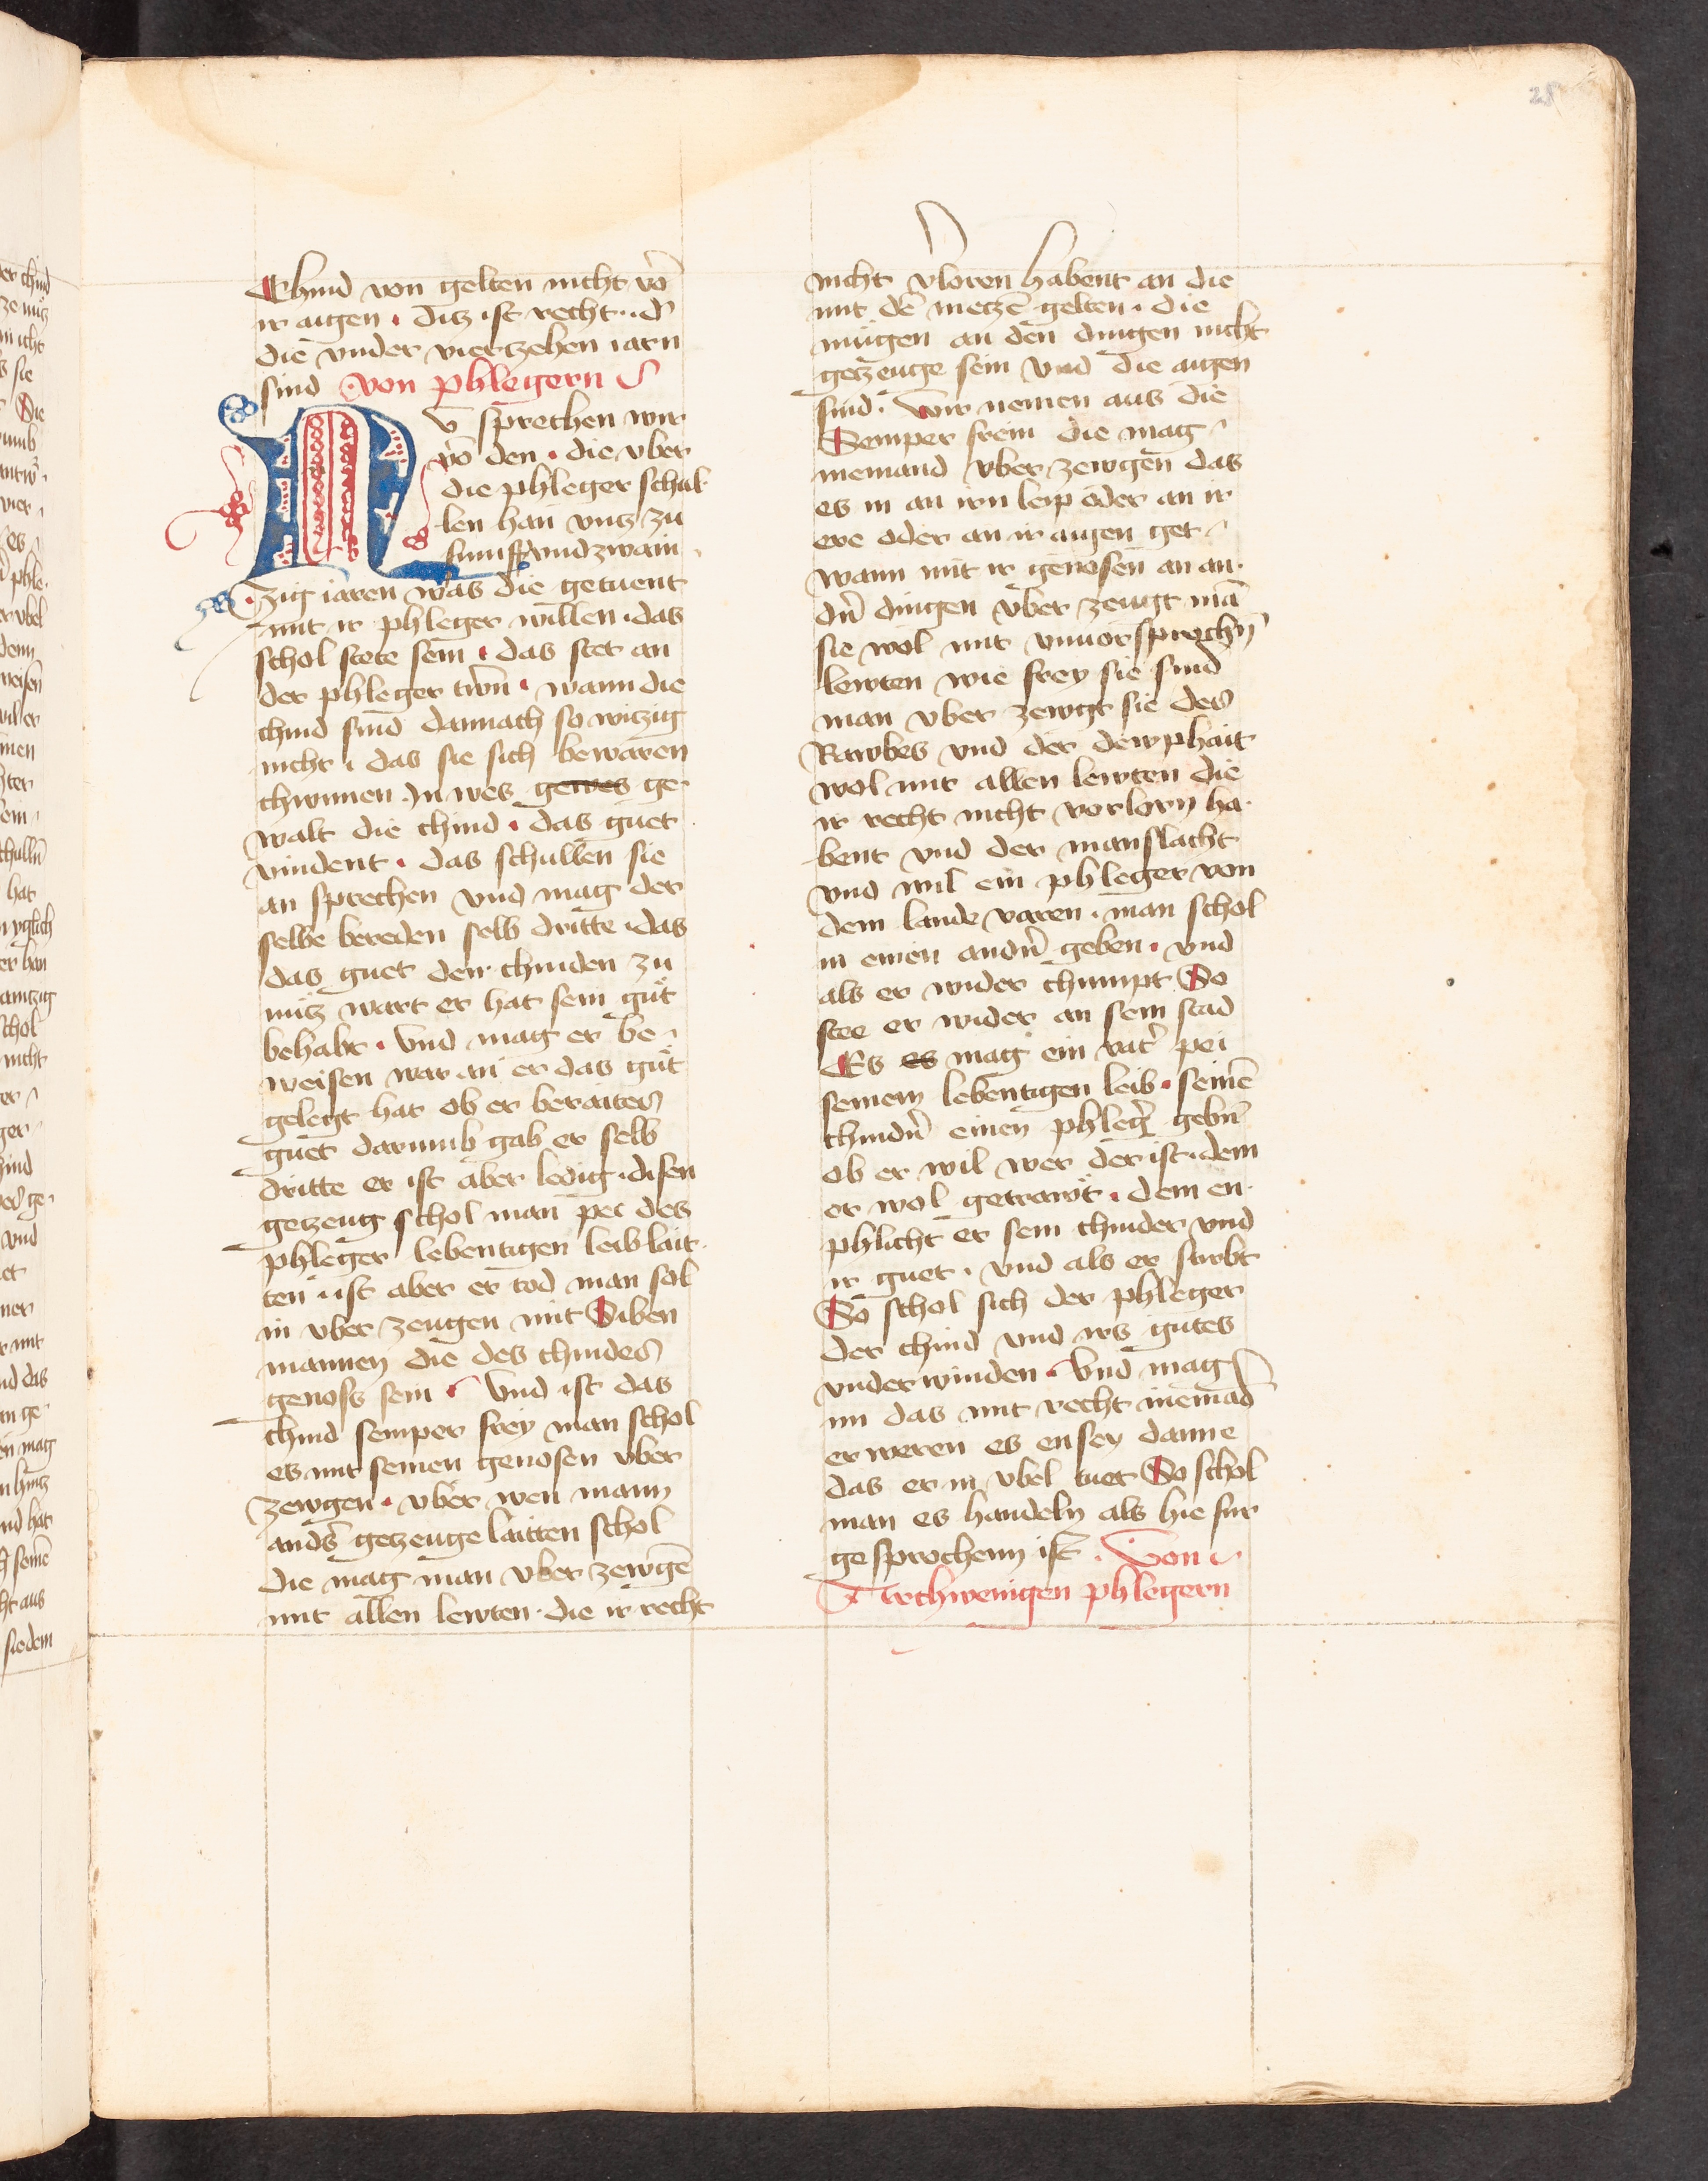 28
Chind von gelten nicht võ
ir aigen · ditz ist recht · d'
die vnder vierzehen iarn
sind von phlegern
Nv sprechen wir
võ den · die vber
die phleger schul-
len han vntz zu
funff vnd zwain
zig iaren was die getuent
mit ir phleger willen · das
schol stete sein · das stet an
der phleger trwn · wann die
chind sind dannach so witzig
nicht · das sie sich bewaren
chwnnen · In wes gewes ge-
walt die chind · das guet
vindent · das schullen sie
an sprechen vnd mag der
selbe bereden selb dritte · das
das guet den chinden zu
nütz wart er hat sein güt
behabt · Vnd mag er be-
weisen war an er das güt
gelegt hat ob er beraites
guet darumb gab er selb
dritte er ist aber ledig · disen
getzeug schol man pei des
phleger lebentigen leib lait-
ten · ist aber er tod man sol
in vber zeugen mit Siben
mannen die des chindes
genoss sein · Vnd ist das
chind semper frey man schol
es mit seinen genosen vber
zewgen · vber wen mann
anders getzeuge laitten schol
die mag man vber zewgẽ
mit allen lewten · die ir recht
nicht v'loren habent an die
mit dẽ metzẽ gelten · die
mügen an den dingen nicht
getzeuge sein vnd die aigen
sind · Wir nemen aus die
Semper frein die mag
niemand vber zewgen das
es in an irn leip oder an ir
ere oder an ir aigen get
wann mit ir genosen an an-
dn̄ dingen vber zeugt mã
sie wol mit vnuorsprochn̄
lewten wie frey sie sind
man vber zewgt sie des
Rawbes vnd der dewphait
wol mit allen lewten die
ir recht nicht vorlorn ha-
bent vnd der manslacht
vnd wil ein phleger von
dem lande varen · man schol
in einen andn̄ geben · vnd
als er wider chumpt So
stee er wider an sein stad
Es es mag ein vat' pei
seinem lebentigen leib · seinẽ
chindn̄ einen phleg' gebn̄
ob er wil wer der ist · dem
er wol getrawt · dem en-
phlicht er sein chinder vnd
ir guet · vnd als er stirbt
So schol sich der phleger
der chind vnd irs gutes
vnder winden · Vnd mag
im das mit recht niemãd
er weren es en sey danne
das er in vbel tuet So schol
man es handeln als hie fur
gesprochenn ist · Von
Vrchwenigen phlegern